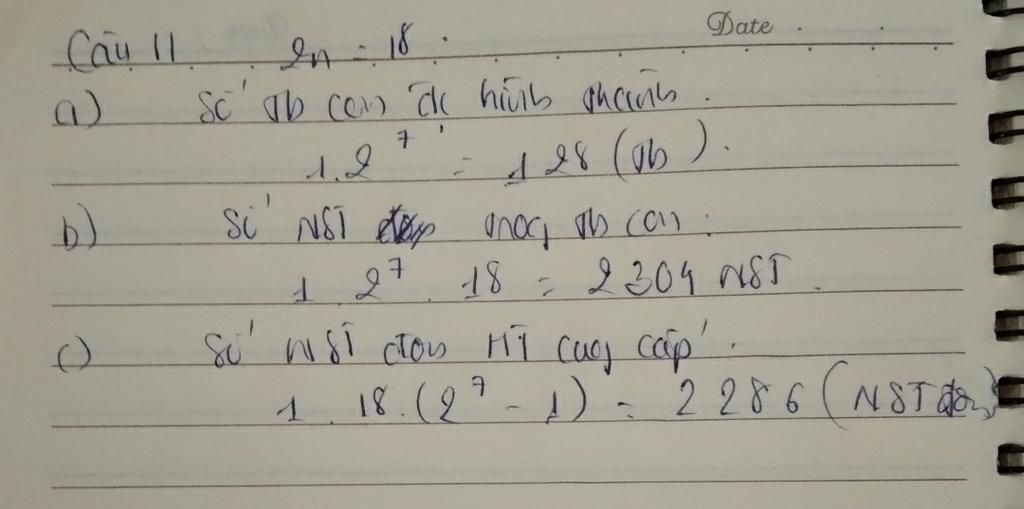 Date
Câu 11 2n = 18.
a) Số tb con đc hình thành.
1.2^7 = 128 (tb).
b) Số NST trong tb con:
1.2^7.18 = 2304 NST.
c) Số NST đơn MT cung cấp.
1.18.(2^7 - 1) = 2286 (NST đơn)